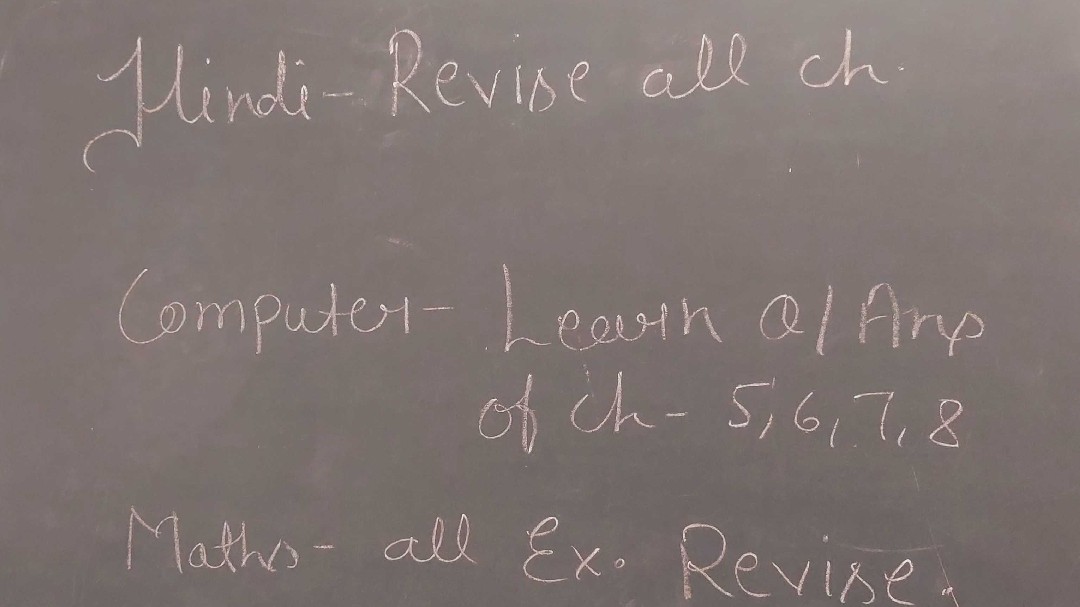 Hindi - Revise all ch.
Computer - Learn Q/Ans
of ch - 5, 6, 7, 8
Maths - all Ex. Revise.